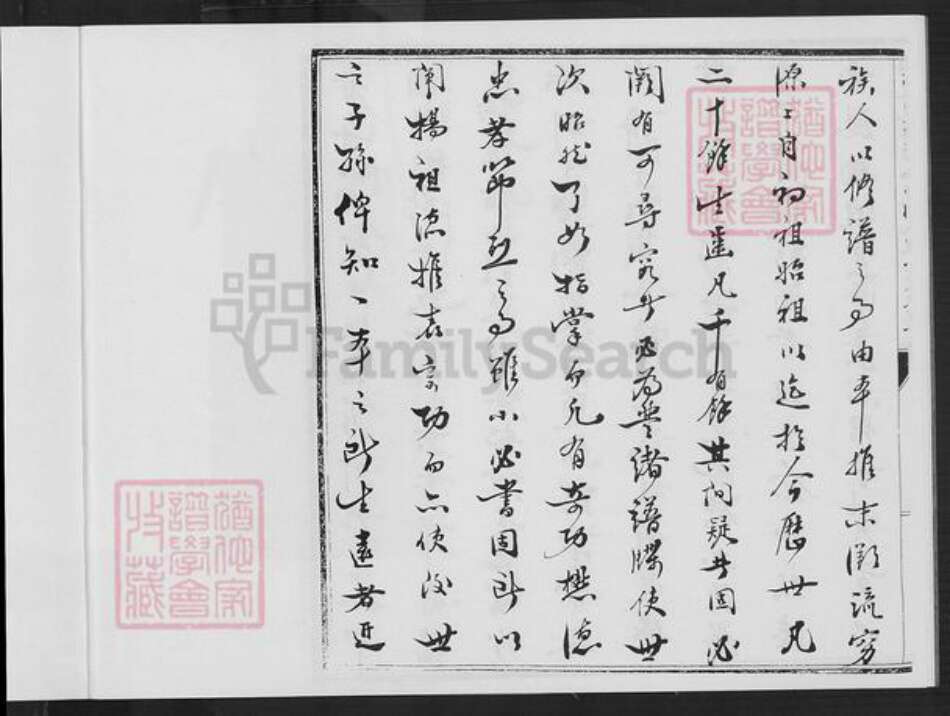 族人以修譜之事由本推末溯流窮
源自初祖昭祖以迄於今歷世凡
二十餘生凡千有餘其間疑者固必
闕有可尋究者必為登諸譜牒使世
次昭然了如指掌而凡有奇功懋德
忠孝節烈之事雖小必書固所以
闡揚祖德推表宗功而亦使後世
之子孫俾知一本之所生遠者近
FamilySearch